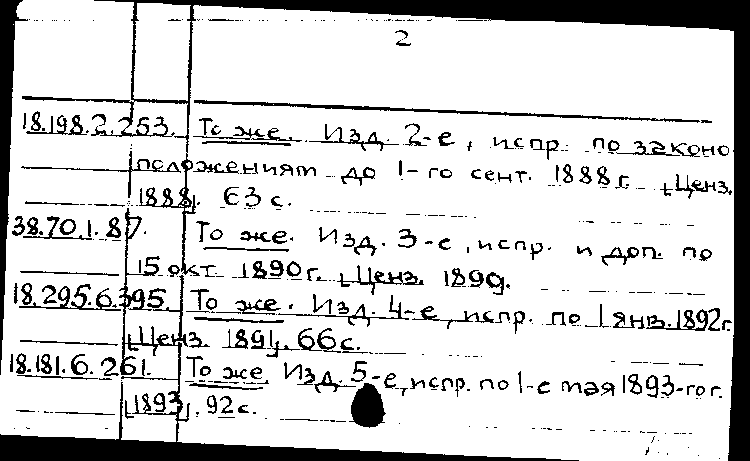 2
18.198.2.253. То же. Изд. 2-е, испр. по законо-
положениям до 1-го сент. 1888 г. [Ценз.
1888]. 63 с.
38.70.1.87. То же. Изд. 3-е, испр. и доп. по
15 окт. 1890 г. [Ценз. 1890].
18.295.6.395. То же. Изд. 4-е, испр. по 1 янв. 1892 г.
[Ценз. 1891]. 66 с.
18.181.6.261. То же. Изд. 5-е, испр. по 1-е мая 1893-го г.
[1893]. 92 с.